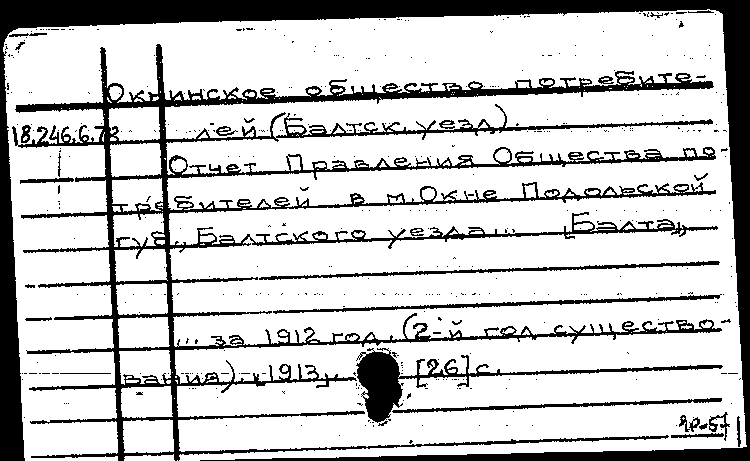 Окнинское общество потребите-
18.246.6.73 лей (Балтск. уезд).
Отчет Правления Общества по-
требителей в м. Окне Подольской
губ., Балтского уезда... [Балта],
... за 1912 год. (2-й год существо-
вания). [1913]. [26] с.